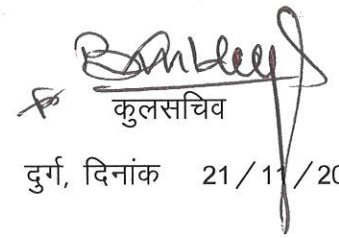 कुलसचिव
दुर्ग, दिनांक 21/11/20